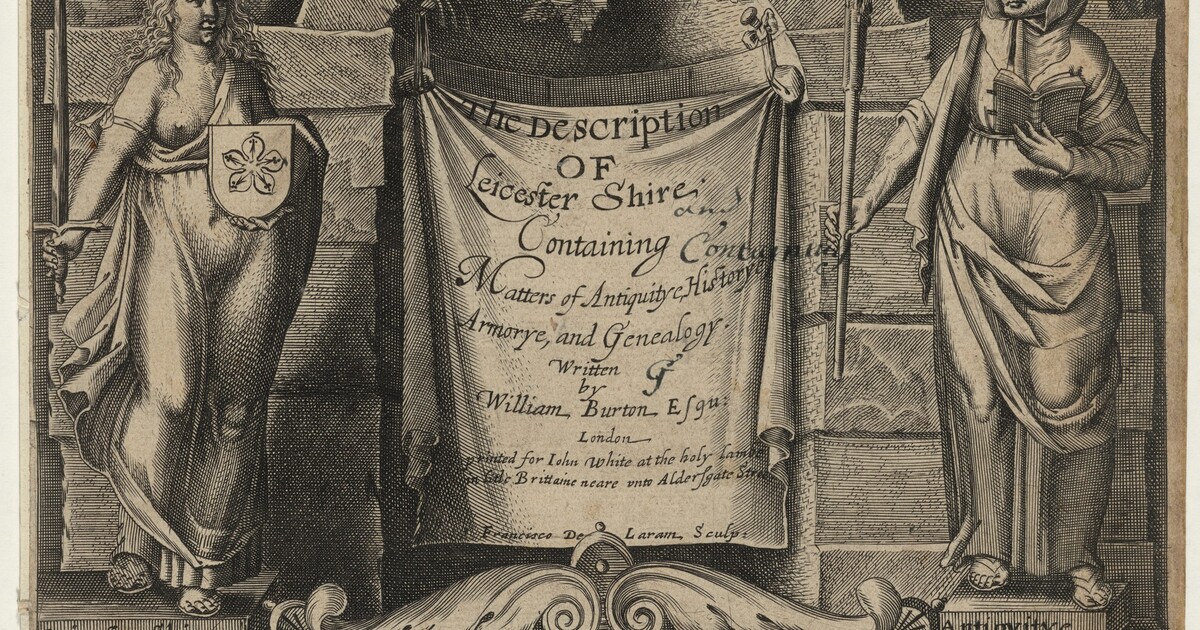 The Description
OF
Leicester Shire;
And
Containing Containing
Matters of Antiquitye, Historye
Armorye, and Genealogy.
Written
by
William Burton Eſqu:
London
printed for Iohn White at the holy Lambe
in little Brittaine neare vnto Alderſgate Streete
Franciſco De Laram Sculp:
Antiquitye